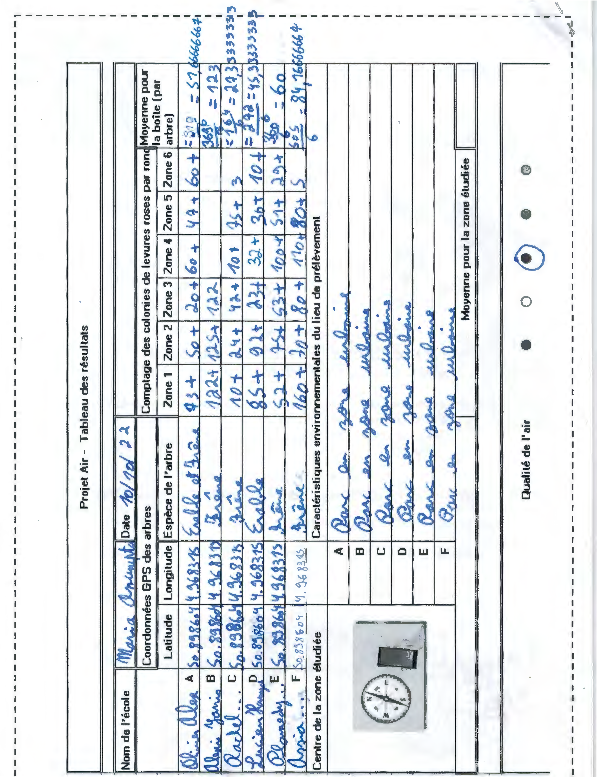 Projet Air - Tableau des résultats
Nom de l'école Maria Assumpta Date 10/10/22
Coordonnées GPS des arbres Comptage des colonies de levures roses par rond Moyenne pour la boîte (par arbre)
Latitude Longitude Espèce de l'arbre Zone 1 Zone 2 Zone 3 Zone 4 Zone 5 Zone 6
A 50.898604 4.968315 Erable et Frêne 93+ 50+ 20+ 60+ 47+ 60+ = 51,66666667
B 50.898604 4.968315 Frêne 122+ 125+ 122 369 = 123
C 50.898604 4.968315 Frêne 10+ 24+ 42+ 10+ 75+ 3
D Lucien 50.898604 4.968315 Erable 85+ 92+ 23+ 32+ 30+ 10+ = 272 = 45,33333333
E 50.898604 4.968315 Frêne 52+ 75+ 53+ 100+ 51+ 29+ 360 = 60
F 50.898604 4.968315 Frêne 160+ 70+ 80+ 110+ 80+ 5 505 = 84,16666667
6
Centre de la zone étudiée Caractéristiques environnementales du lieu de prélèvement
A Parc en zone urbaine
B Parc en zone urbaine
C Parc en zone urbaine
D Parc en zone urbaine
E Parc en zone urbaine
F Parc en zone urbaine
Moyenne pour la zone étudiée
Qualité de l'air